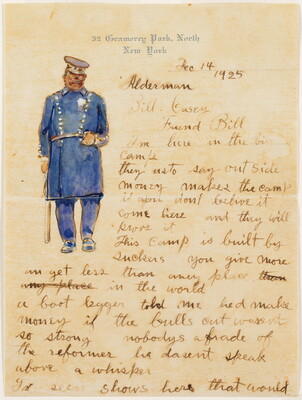 32 Gramercy Park, North
New York
Dec 14 1925
Alderman
Bill Casey
Friend Bill
I'm here in the big
camp
they ust to say out side
money makes the camp
if you dont belive it
come here and they will
prove it
This camp is built by
suckers you give more
an get less than any place than
any place in the world
a boot legger told me hed make
money if the bulls out wasent
so strong nobodys afrade of
the reformer he dasent speak
above a whisper
I've seen shows here that would